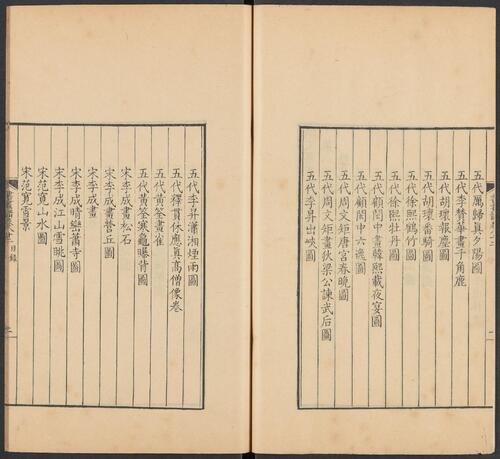 五代厲歸真夕陽圖
五代李贊華畫千角鹿
五代胡瓌報塵圖
五代胡瓌番騎圖
五代徐熙鶴竹圖
五代徐熙牡丹圖
五代顧閎中畫韓熙載夜宴圖
五代顧閎中六逸圖
五代周文矩唐宮春曉圖
五代周文矩畫狄梁公諫武后圖
五代李昇出峽圖
五代李昇瀟湘煙雨圖
五代釋貫休應真高僧像卷
五代黃筌畫雀
五代黃筌寒龜曝背圖
宋李成畫松石
宋李成畫營丘圖
宋李成畫
宋李成晴巒蕭寺圖
宋李成江山雪眺圖
宋范寬山水圖
宋范寬雪景
目錄
二